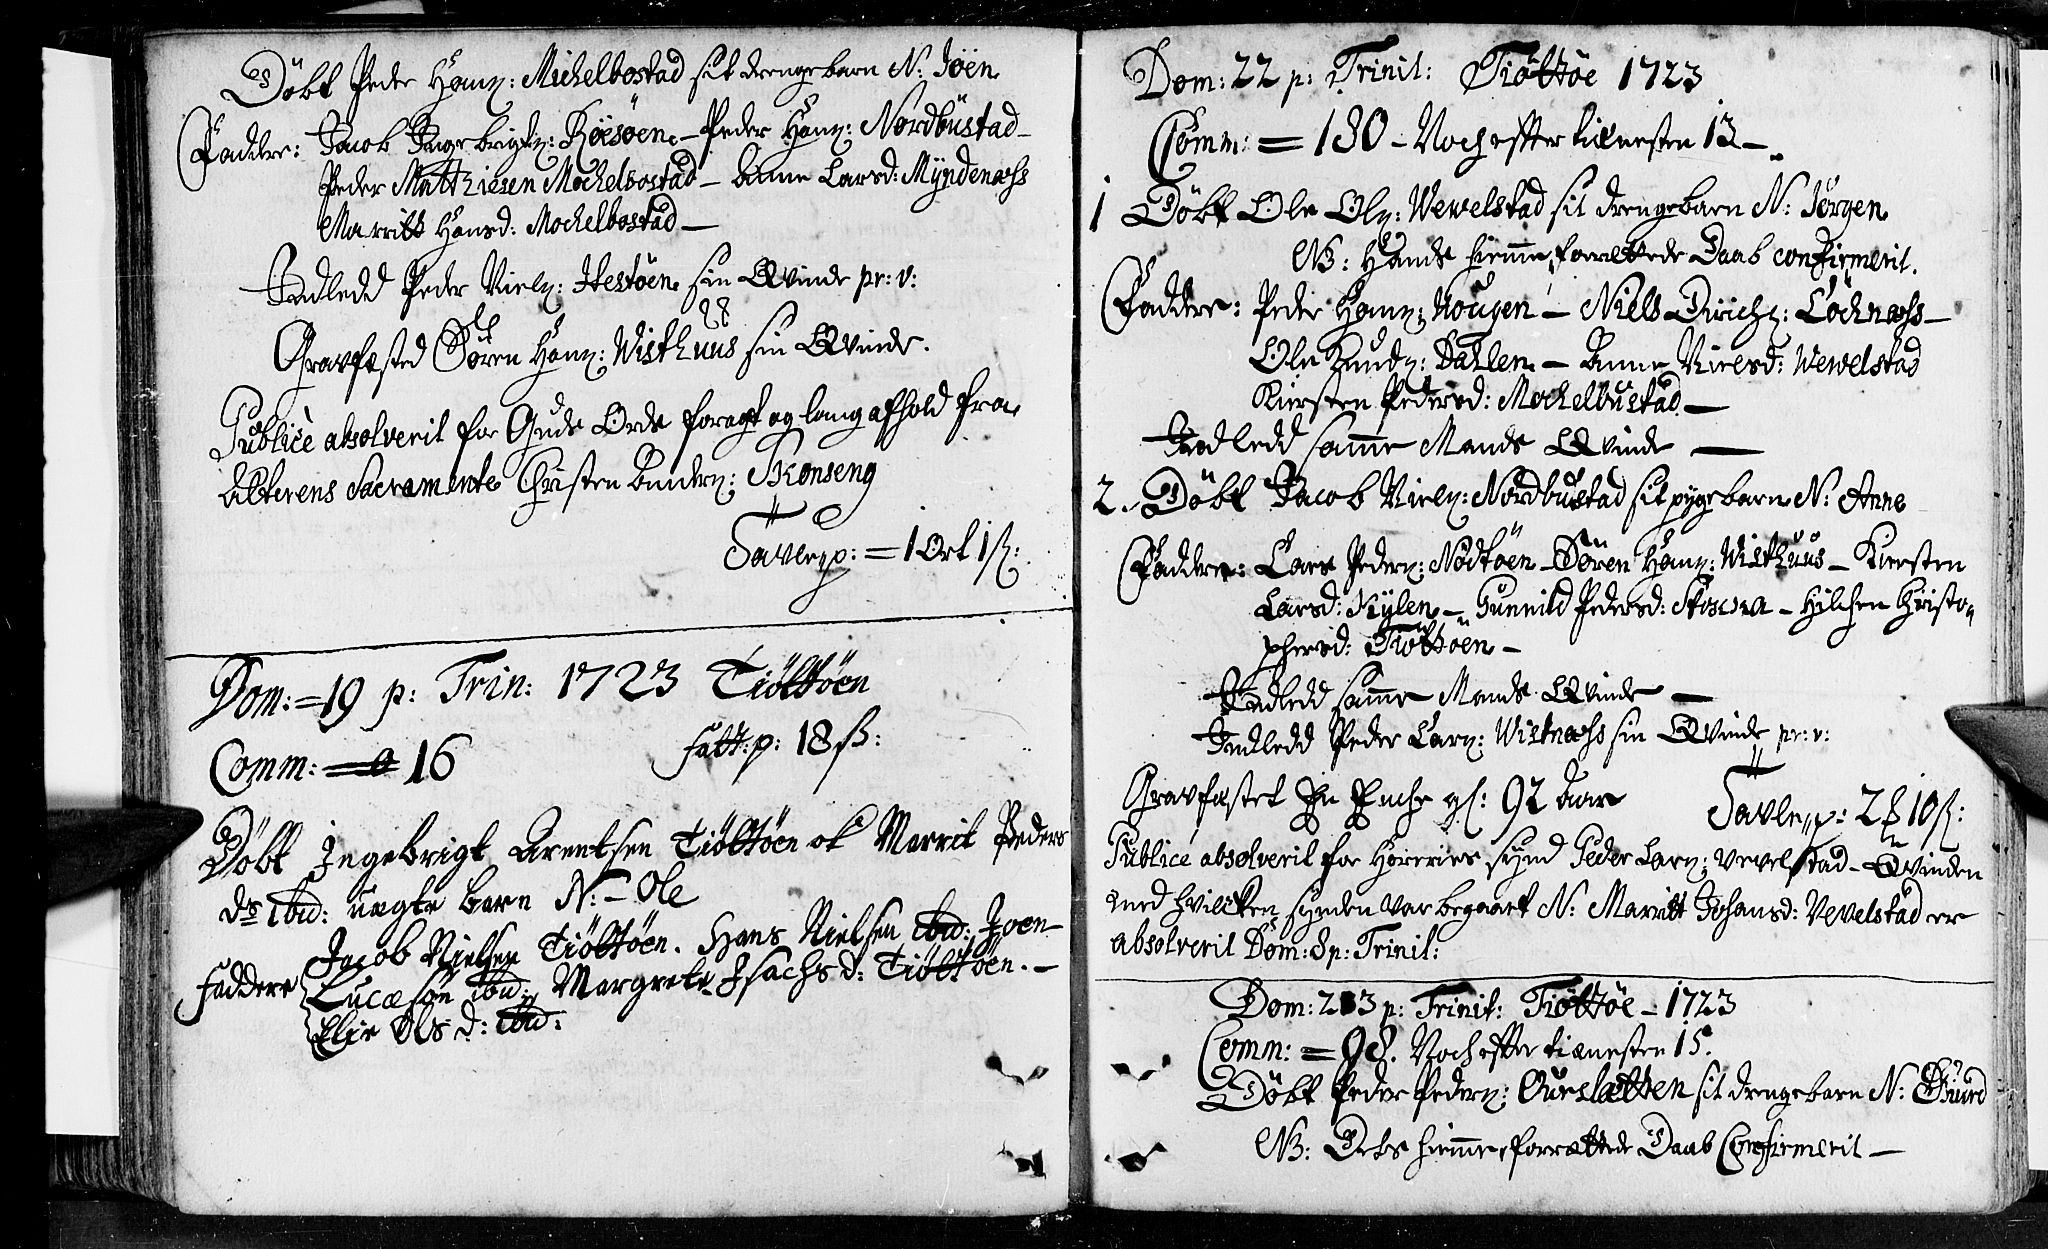 Döbt Peder Hanß: Michelbostad sit drengebarn N: Jöen
Faddre: Jacob Ingebrigtß: Röesöen – Peder Hanß: Nordbustad –
Peder Matthiesen Mochelbostad – Anne Larsd: Myndenæss
Marritt Hansd: Mochelbostad –
Indledd Peder Nielß: Hestöen sin Qvinde pr: v:
Gravfæsted Sören Hanß: Wisthuus sin Qvinde.
Publicè absolverit for Guds Ords foragt og lang afhold fra
Alterens Sacramente Christen Andersß: Skonseng
Tavlep: = 1 Ort 1 ß:
Dom: = 19 p: Trin: 1723 Tiöttöen
Comm: = 16
Fatt: p: 18 ß:
Döbt Ingebrigt Arentsen Tiöttöen ok Marrit Peders
ds ibid: uægte barn N: – Ole
Jacob Nielsen Tiöttöen. Hans Nielsen ibid: Joen
Faddere Lucæsön ibid: Margrete Isachsd: Tiöttöen. –
Elie Olsd: ibid:
Dom: 22 p: Trinit: Tiöttöe 1723
Comm: = 130 – Noch effter tiænesten 13 –
1 Döbt Ole Olß: Wewelstad sit drengebarn N: Jörgen
NB: Hands hiemme forrettede Daab confirmerit.
Faddere: Peder Hanß: Hougen – Niels Dirichß: Löchnæss –
Ole Knudß: Dahlen – Anne Nielsd: Wewelstad
Kirsten Pedersd: Mochelbustad –
Indledd samme Mands Qvinde –
2. Döbt Jacob Nielß: Nordbustad sit pygebarn N: Anne
Faddere: Lars Pederß: Nödtöen – Sören Hanß: Wisthuus – Kiersten
Larsd: Kylen – Gunnild Pedersd: Skosvra – Hilchen Christo„
phersd: Tiöttöen –
Indledd samme Mands Qvinde –
Indledd Peder Larß: Wistnæss sin Qvinde pr: v:
Gravfæstet En Enche gl: 92 aar
Tavlep: 2 10 ß:
Publicè absolverit for Horeries synd Peder Larß: Vevelstad – Qvinden
med hvilcken synden var begaaet N: Marritt Johansd: Vevelstad er
absolverit Dom: 8 p: Trinit:
Dom: 23 p: Trinit: Tiöttöe – 1723
Comm: = 98. Noch effter tiænesten 15.
Döbt Peder Pederß: Ourslætten sit drengebarn N:
NB: Dets hiemme forrættede Daab Confirmerit –